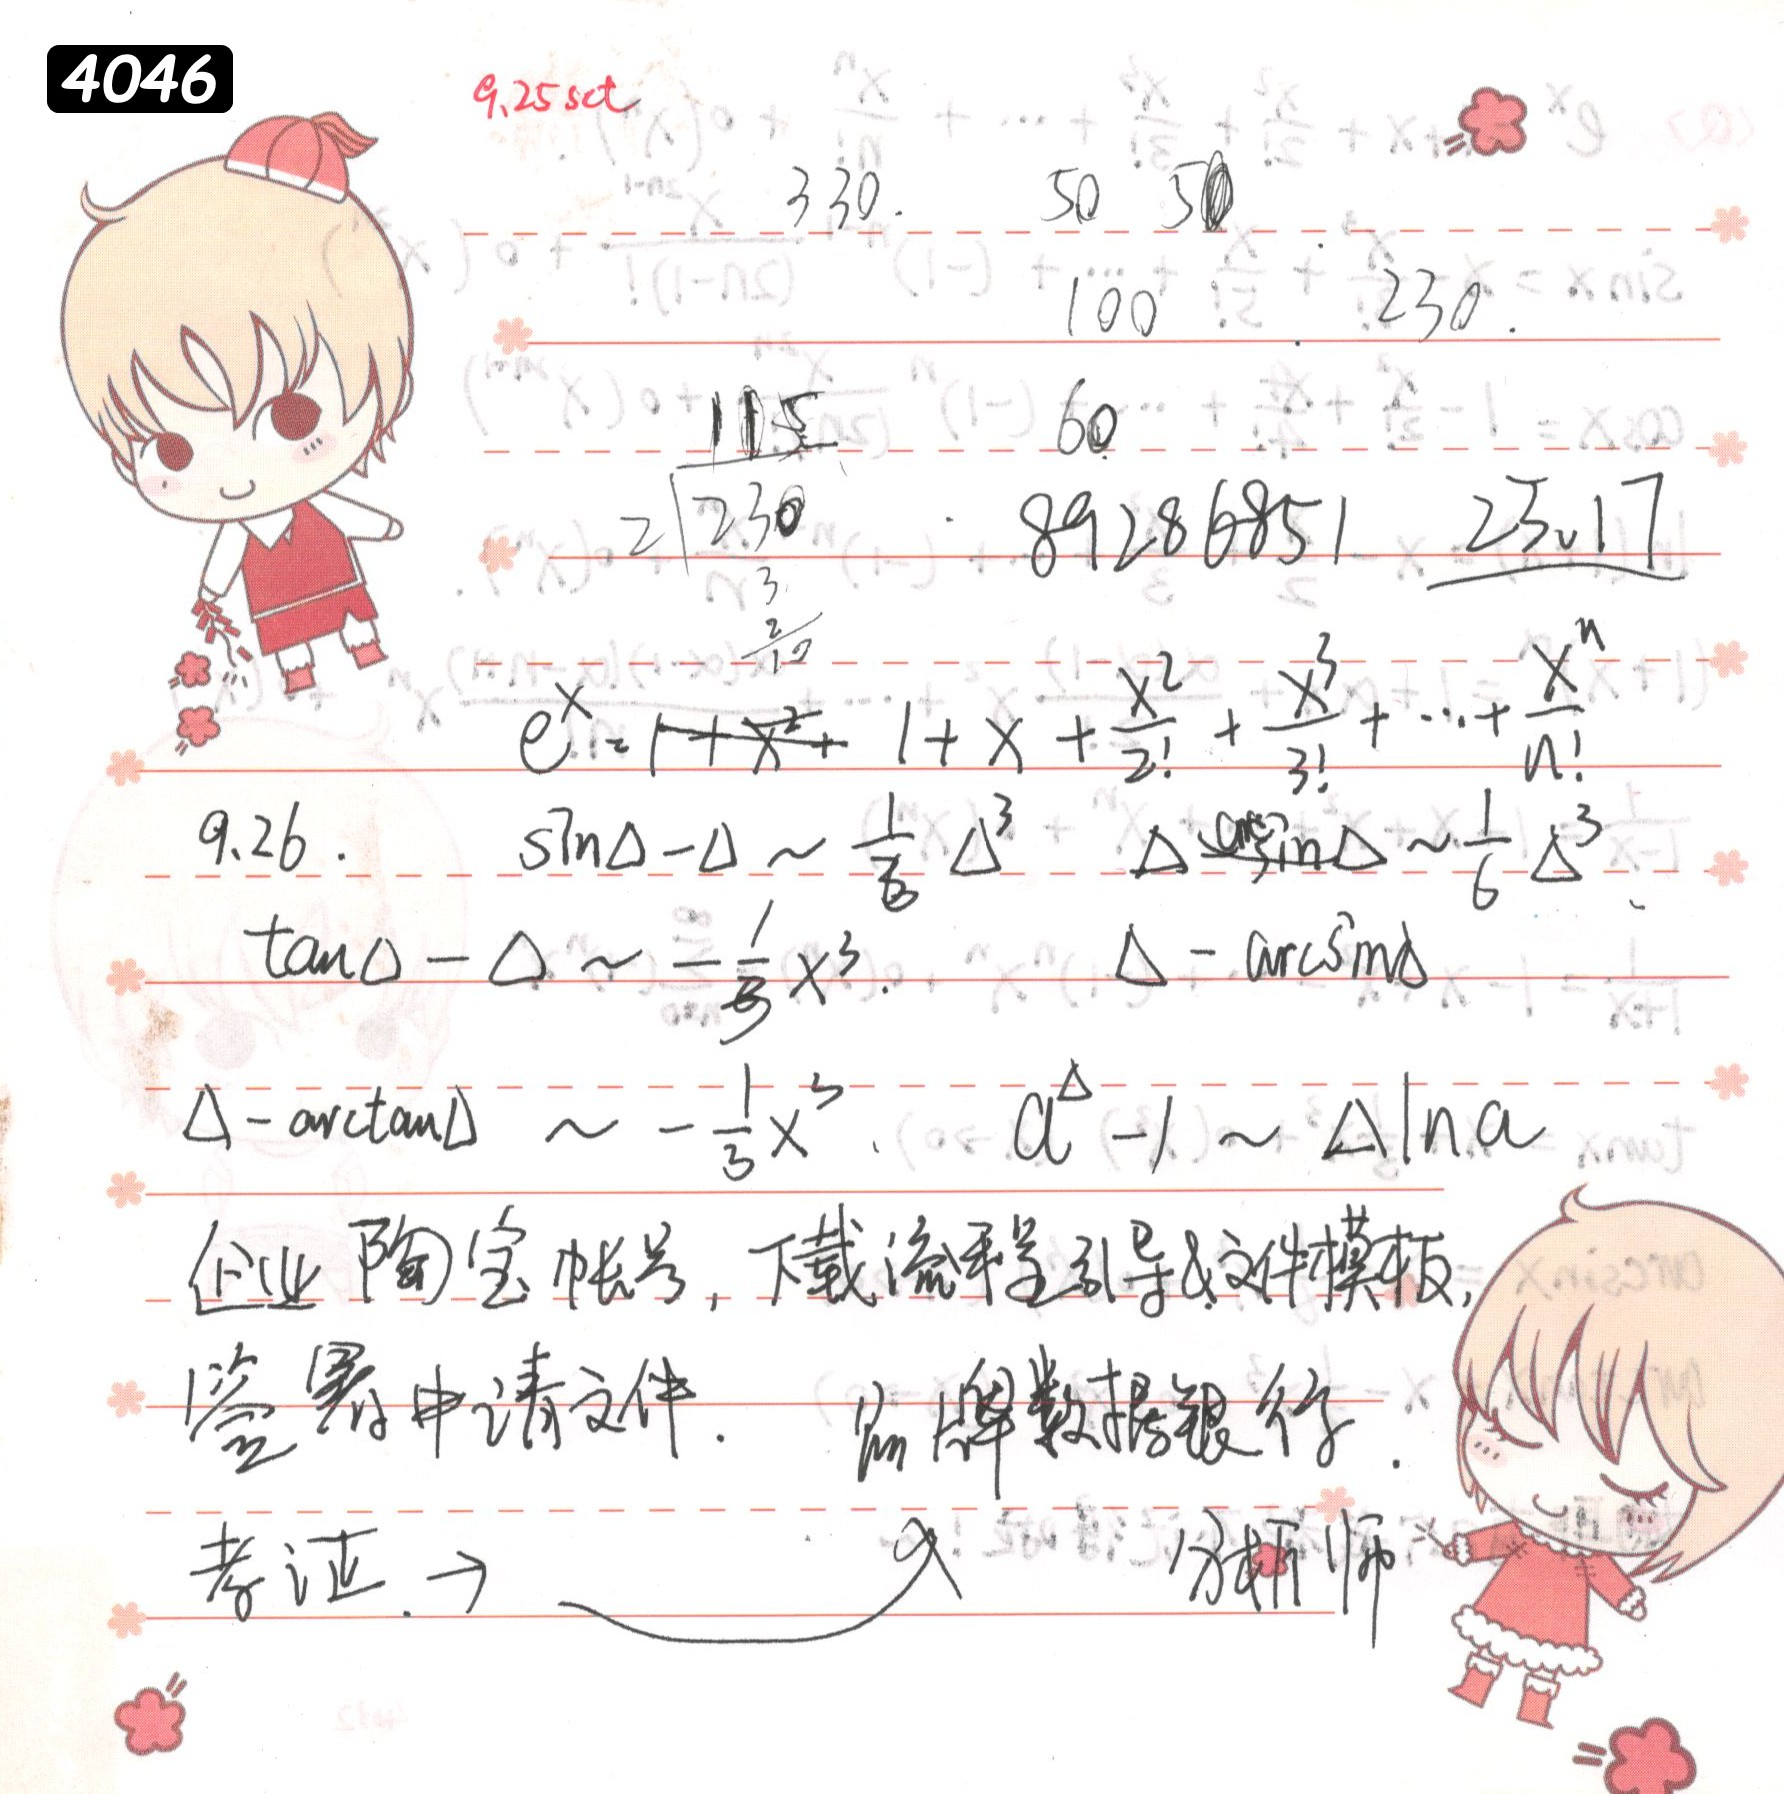 4046
9.25 sct
330. 50 50
100 230.
115 60
2 230 89286851 25.17
3
2
10
e^x = 1+x^2+ 1+x+x^2/2!+x^3/3!+…+x^n/n!
9.26. sinΔ-Δ~1/6Δ^3 Δ arcsinΔ~1/6Δ^3
tanΔ-Δ~-1/3x^3. Δ-arcsinΔ
Δ-arctanΔ ~ -1/3x^3. a^Δ-1~Δlna
企业陶宝帐号,下载流程引导&文件模板,
签署申请文件. 品牌数据银行.
考证.→ 分析师